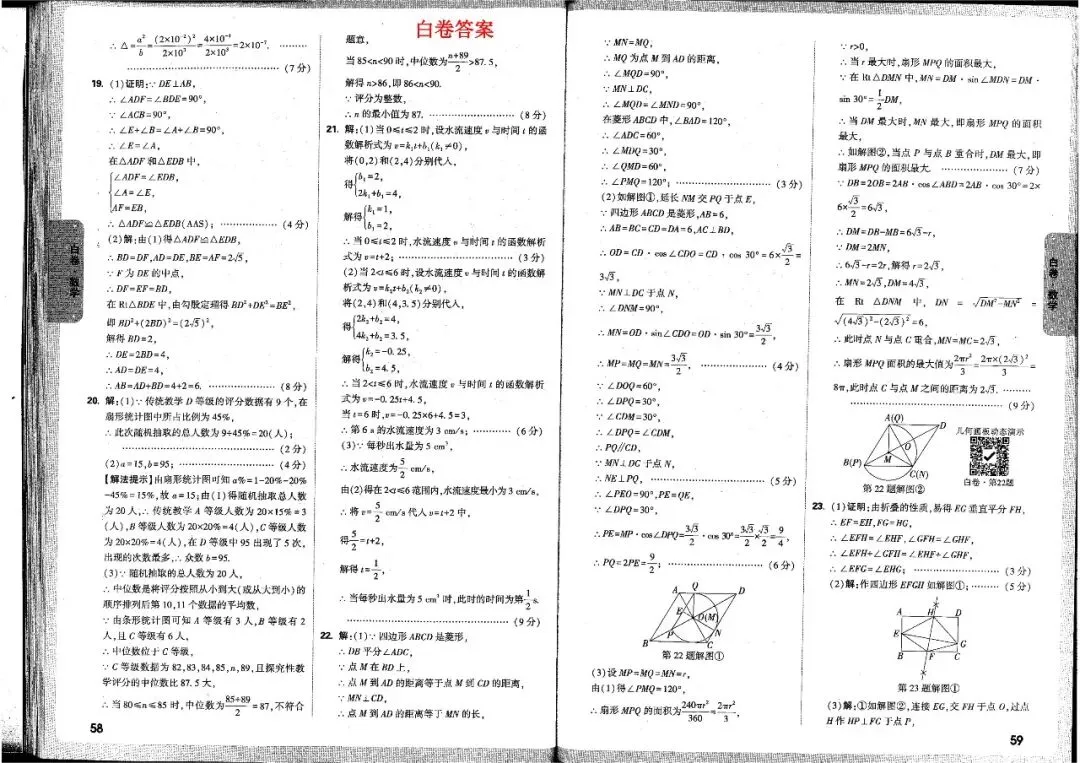 白卷答案
∴ △=a²/b=(2×10⁻²)²/(2×10³)=4×10⁻⁴/(2×10³)=2×10⁻⁷. ………
……………………………………(7分)
19. (1)证明:∵ DE⊥AB,
∴ ∠ADF=∠BDE=90°,
∵ ∠ACB=90°,
∴ ∠E+∠B=∠A+∠B=90°,
∴ ∠E=∠A,
在△ADF和△EDB中,
∠ADF=∠EDB,
∠A=∠E,
AF=EB,
∴ △ADF≌△EDB(AAS); ……………(4分)
(2)解:由(1)得△ADF≌△EDB,
∴ BD=DF,AD=DE,BE=AF=2√5,
∵ F为DE的中点,
∴ DF=EF=BD,
在Rt△BDE中,由勾股定理得BD²+DE²=BE²,
即BD²+(2BD)²=(2√5)²,
解得BD=2,
∴ DE=2BD=4,
∴ AD=DE=4,
∴ AB=AD+BD=4+2=6. ………………(8分)
20. 解:(1)∵ 传统教学D等级的评分数据有9个,在
扇形统计图中所占比例为45%,
∴ 此次随机抽取的总人数为9÷45%=20(人);
……………………………………(2分)
(2)a=15,b=95; ……………………(4分)
【解法提示】由扇形统计图可知a%=1-20%-20%
-45%=15%,故a=15;由(1)得随机抽取总人数
为20人,∴ 传统教学A等级人数为20×15%=3
(人),B等级人数为20×20%=4(人),C等级人数
为20×20%=4(人),在D等级中95出现了5次,
出现的次数最多,∴ 众数b=95.
(3)∵ 随机抽取的总人数为20人,
∴ 中位数是将评分按照从小到大(或从大到小)的
顺序排列后第10,11个数据的平均数,
∵ 由条形统计图可知A等级有3人,B等级有2
人,且C等级有6人,
∴ 中位数位于C等级,
∵ C等级数据为82,83,84,85,n,89,且探究性教
学评分的中位数比87.5大,
∴ 当80≤n≤85时,中位数为(85+89)/2=87,不符合
58
白卷·数学
题意,
当85<n<90时,中位数为(n+89)/2>87.5,
解得n>86,即86<n<90.
∵ 评分为整数,
∴ n的最小值为87. ……………………(8分)
21. 解:(1)当0≤t≤2时,设水流速度v与时间t的函
数解析式为v=k₁t+b₁(k₁≠0),
将(0,2)和(2,4)分别代入,
得 b₁=2,
2k₁+b₁=4,
解得 k₁=1,
b₁=2,
∴ 当0≤t≤2时,水流速度v与时间t的函数解析
式为v=t+2; …………………………(3分)
(2)当2<t≤6时,设水流速度v与时间t的函数解
析式为v=k₂t+b₂(k₂≠0),
将(2,4)和(4,3.5)分别代入,
得 2k₂+b₂=4,
4k₂+b₂=3.5,
解得 k₂=-0.25,
b₂=4.5,
∴ 当2<t≤6时,水流速度v与时间t的函数解析
式为v=-0.25t+4.5,
当t=6时,v=-0.25×6+4.5=3,
∴ 第6 s的水流速度为3 cm/s; …………(6分)
(3)∵ 每秒出水量为5 cm³,
∴ 水流速度为5/2 cm/s,
由(2)得在2<t≤6范围内,水流速度最小为3 cm/s,
∴ 将v=5/2 cm/s代入v=t+2中,
得5/2=t+2,
解得t=1/2,
∴ 当每秒出水量为5 cm³时,此时的时间为第1/2 s.
……………………………………(9分)
22. 解:(1)∵ 四边形ABCD是菱形,
∴ DB平分∠ADC,
∵ 点M在BD上,
∴ 点M到AD的距离等于点M到CD的距离,
∵ MN⊥CD,
∴ 点M到AD的距离等于MN的长,
∵ MN=MQ,
∴ MQ为点M到AD的距离,
∴ ∠MQD=90°,
∵ MN⊥DC,
∴ ∠MQD=∠MND=90°,
在菱形ABCD中,∠BAD=120°,
∴ ∠ADC=60°,
∴ ∠MDQ=30°,
∴ ∠QMD=60°,
∴ ∠PMQ=120°; ………………………(3分)
(2)如解图①,延长NM交PQ于点E,
∵ 四边形ABCD是菱形,AB=6,
∴ AB=BC=CD=DA=6,AC⊥BD,
∴ OD=CD·cos∠CDO=CD·cos 30°=6×√3/2=
3√3,
∵ MN⊥DC于点N,
∴ ∠DNM=90°,
∴ MN=OD·sin∠CDO=OD·sin 30°=3√3/2,
∴ MP=MQ=MN=3√3/2, ………………(4分)
∵ ∠DOQ=60°,
∴ ∠DPQ=30°,
∵ ∠CDM=30°,
∴ ∠DPQ=∠CDM,
∴ PQ∥CD,
∵ MN⊥DC于点N,
∴ NE⊥PQ, ……………………………(5分)
∴ ∠PEO=90°,PE=QE,
∵ ∠DPQ=30°,
∴ PE=MP·cos∠DPQ=3√3/2·cos 30°=3√3/2×√3/2=9/4,
∴ PQ=2PE=9/2; ………………………(6分)
A Q D
E O(M)
P N
B C
第22题解图①
(3)设MP=MQ=MN=r,
由(1)得∠PMQ=120°,
∴ 扇形MPQ的面积为240πr²/360=2πr²/3,
∵ r>0,
∴ 当r最大时,扇形MPQ的面积最大,
∵ 在Rt△DMN中,MN=DM·sin∠MDN=DM·
sin 30°=1/2DM,
∴ 当DM最大时,MN最大,即扇形MPQ的面积
最大,
∴ 如解图②,当点P与点B重合时,DM最大,即
扇形MPQ的面积最大. ………………(7分)
∵ DB=2OB=2AB·cos∠ABD=2AB·cos 30°=2×
6×√3/2=6√3,
∴ DM=DB-MB=6√3-r,
∵ DM=2MN,
∴ 6√3-r=2r,解得r=2√3,
∴ MN=2√3,DM=4√3,
在Rt△DNM中,DN=√(DM²-MN²)=
√((4√3)²-(2√3)²)=6,
∴ 此时点N与点C重合,MN=MC=2√3,
∴ 扇形MPQ面积的最大值为2πr²/3=2π×(2√3)²/3=
8π,此时点C与点M之间的距离为2√3. ………
……………………………………(9分)
A(Q) D
O
M
B(P) C(N)
第22题解图②
几何画板动态演示
白卷·第22题
23. (1)证明:由折叠的性质,易得EG垂直平分FH,
∴ EF=EH,FG=HG,
∴ ∠EFH=∠EHF,∠GFH=∠GHF,
∴ ∠EFH+∠GFH=∠EHF+∠GHF,
∴ ∠EFG=∠EHG; ……………………(3分)
(2)解:作四边形EFGH如解图①; ………(5分)
A H D
E
G
B F C
第23题解图①
(3)解:①如解图②,连接EG,交FH于点O,过点
H作HP⊥FC于点P,
白卷·数学
59